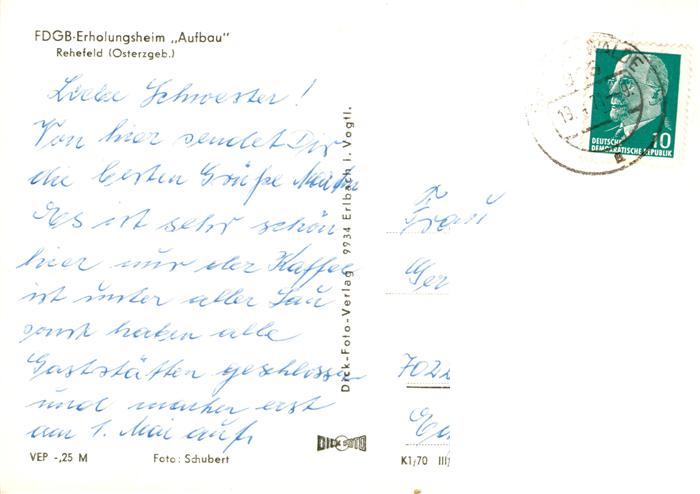 FDGB-Erholungsheim „Aufbau"
Rehefeld (Osterzgeb.)
Liebe Schwester!
Von hier sendet Dir
die besten Grüße
Es ist sehr schön
hier nur der Kaffee
ist unter aller Sau
sonst haben alle
Gaststätten geschlossen
und machen erst
am 1. Mai auf.
VEP -,25 M
Foto: Schubert
Dick-Foto-Verlag 9934 Erlbach i. Vogtl.
DICK FOTO
K1/70 III/
DEUTSCHE
DEMOKRATISCHE REPUBLIK
10
Frau
Ger
702